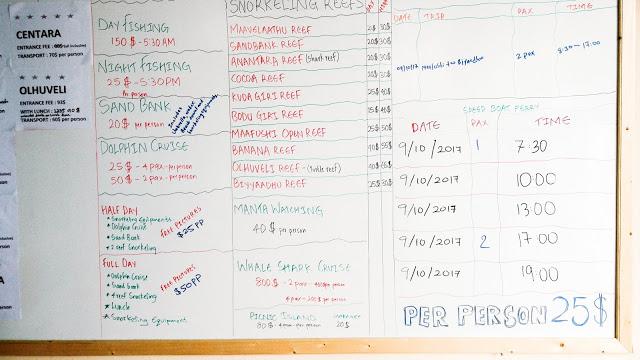 CENTARA
TRANSPORT : 70$ per person
OLHUVELI
ENTRANCE FEE : 93$
TRANSPORT : 60$ per person
DAY FISHING
150 $ - 5:30 AM
NIGHT FISHING
25 $ - 5:30 PM
Per person
SAND BANK
20 $ per person
DOLPHIN CRUISE
25 $ - 4 pax - per person
50 $ - 2 pax - per person
HALF DAY
* Snorkeling Equipments
* Dolphin Cruise
* Sand Bank
* 2 reef Snorkeling
FREE PICTURES
$25 PP
FULL DAY
* Dolphin Cruise
* Sand bank
* 4 reef Snorkeling
* Lunch
* Snorkeling Equipment
Free Pictures
$50 PP
SNORKELING REEFS
MAAVELAATHU REEF
SANDBANK REEF
ANANTARA REEF (Shark reef)
COCOA REEF
KUDA GIRI REEF
BODU GIRI REEF
MAAFUSHI OPEN REEF
BANANA REEF
OLHUVELI REEF - (turtle reef)
BIYYAADHU REEF
MANTA WATCHING
40 $ per person
WHALE SHARK CRUISE
PICNIC ISLAND
80 $ - 4 pax - per person
20 $
DATE TRIP PAX TIME
2 pax
SPEED BOAT FERRY
DATE PAX TIME
9/10/2017 1 7:30
9/10/2017 10:00
9/10/2017 13:00
9/10/2017 2 17:00
9/10/2017 19:00
PER PERSON 25$